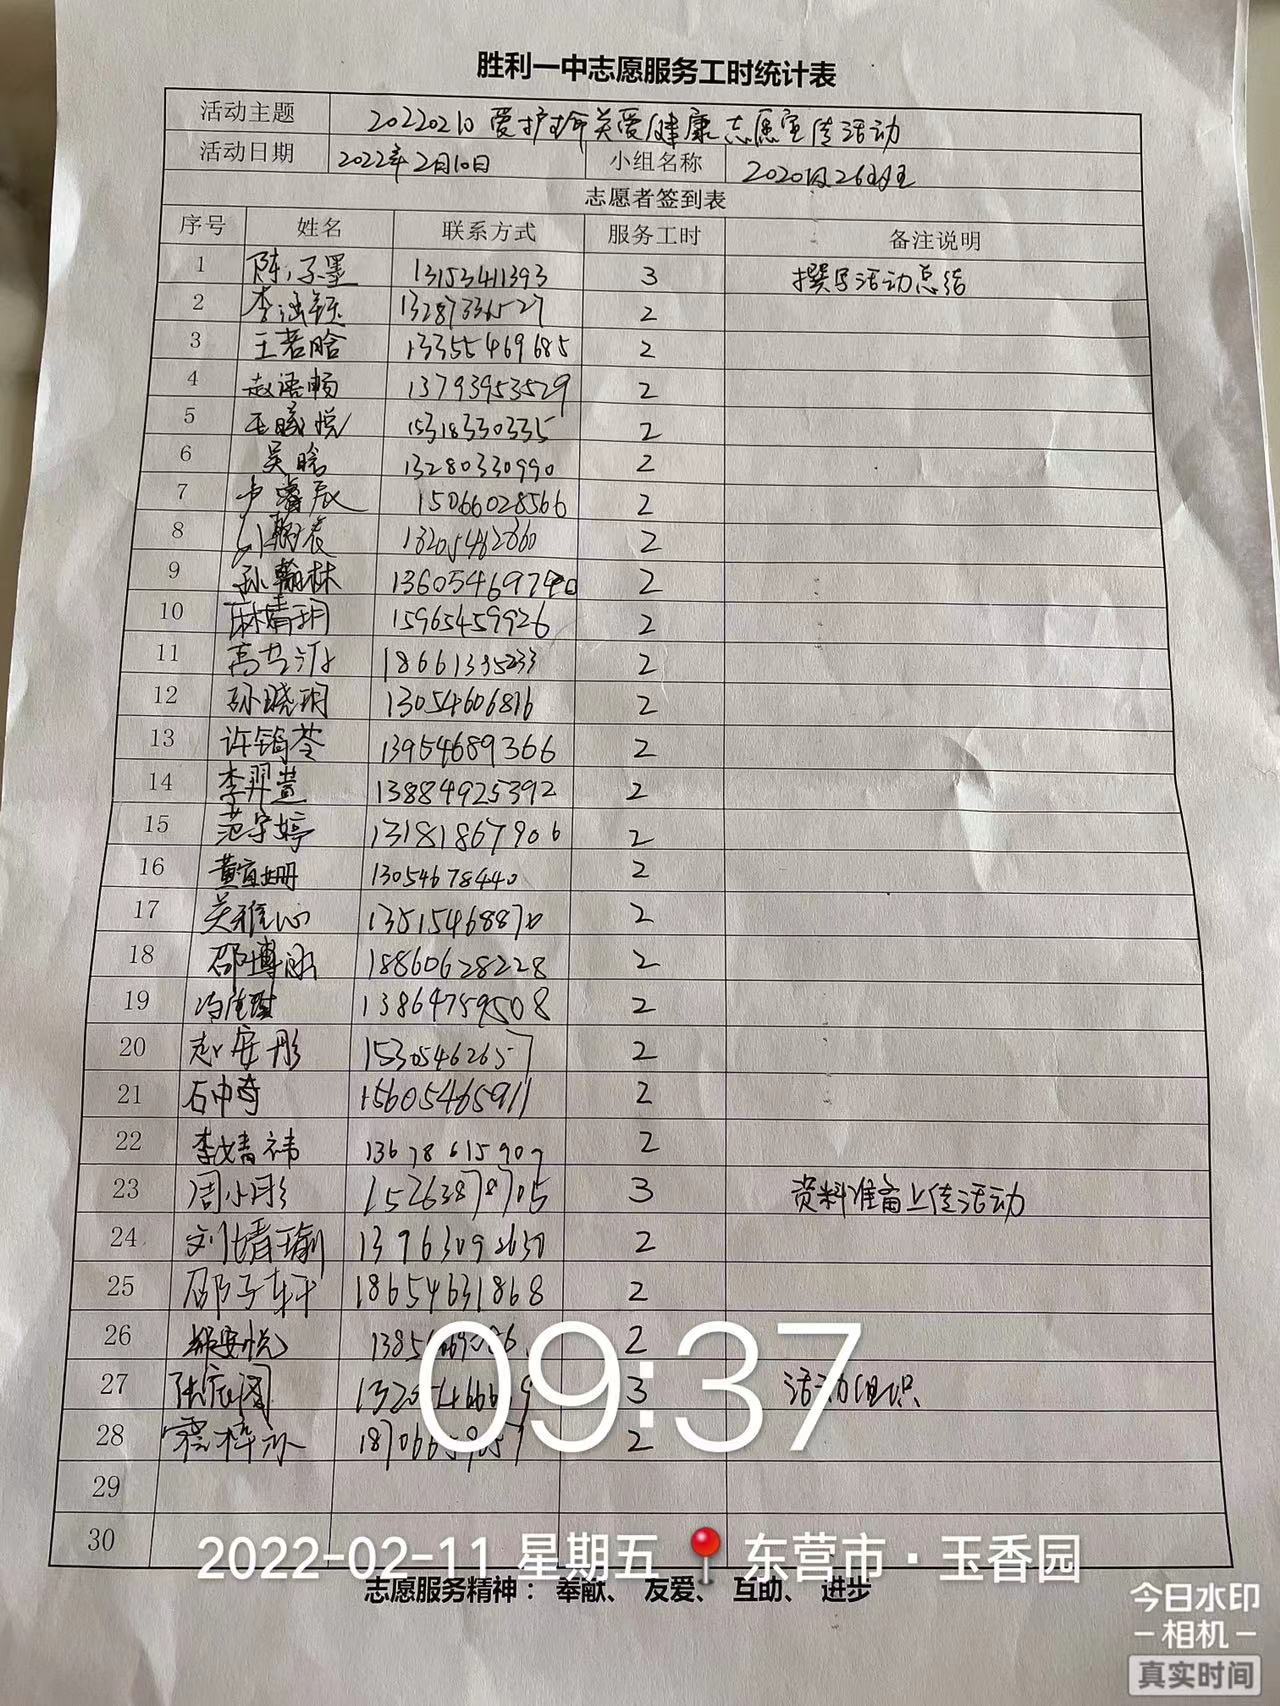 胜利一中志愿服务工时统计表
活动主题 20220210爱护 关爱健康志愿宣传活动
活动日期 2022年2月10日 小组名称 2020级26班
志愿者签到表
序号 姓名 联系方式 服务工时 备注说明
1 陈子墨 13153411393 3 撰写活动总结
2 李涵钰 13287336527 2
3 王若晗 13355469685 2
4 赵语畅 13793953529 2
5 王曦悦 15318330335 2
6 吴晗 13280330990 2
7 卢睿辰 15066028566 2
8 2
9 孙翰林 2
10 麻婧玥 15965459926 2
11 高艺 18661395233 2
12 孙晓玥 13054606816 2
13 许筠苓 13954689366 2
14 李羿萱 13884925392 2
15 范宇婷 13181867906 2
16 黄宣珊 13054678440 2
17 吴雅心 13515468870 2
18 邵博涵 18860628228 2
19 13864759508 2
20 赵安彤 15305462657 2
21 石中奇 15605465911 2
22 李婧祎 13678615907 2
23 周小彤 15263878705 3 资料准备上传活动
24 刘婧瑜 13963092630 2
25 邵子轩 18654631868 2
26 2
27 张宸阁 3 活动组织
28 2
29
30
09:37
2022-02-11 星期五 东营市·玉香园
志愿服务精神： 奉献、 友爱、 互助、 进步
今日水印
－相机－
真实时间